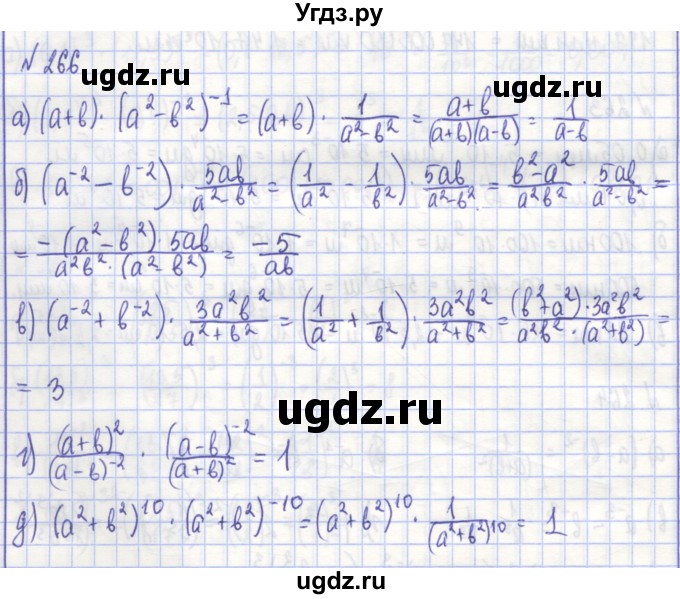 Угдз.ру
№ 266
ugdz.ru
ugdz.ru
а) (a+b) · (a² − b²)⁻¹ = (a+b) · 1/(a² − b²) = (a+b)/((a+b)(a−b)) = 1/(a−b)
б) (a⁻² − b⁻²) · 5ab/(a² − b²) = (1/a² − 1/b²) · 5ab/(a² − b²) = (b² − a²)/(a²b²) · 5ab/(a² − b²) =
= (−(a² − b²) · 5ab)/(a²b² · (a² − b²)) = −5/(ab)
в) (a⁻² + b⁻²) · 3a²b²/(a² + b²) = (1/a² + 1/b²) · 3a²b²/(a² + b²) = ((b² + a²) · 3a²b²)/(a²b² · (a² + b²)) =
= 3
ugdz.ru
г) (a+b)²/(a−b)⁻² · (a−b)⁻²/(a+b)² = 1
д) (a² + b²)¹⁰ · (a² + b²)⁻¹⁰ = (a² + b²)¹⁰ · 1/(a² + b²)¹⁰ = 1
ugdz.ru
ugdz.ru